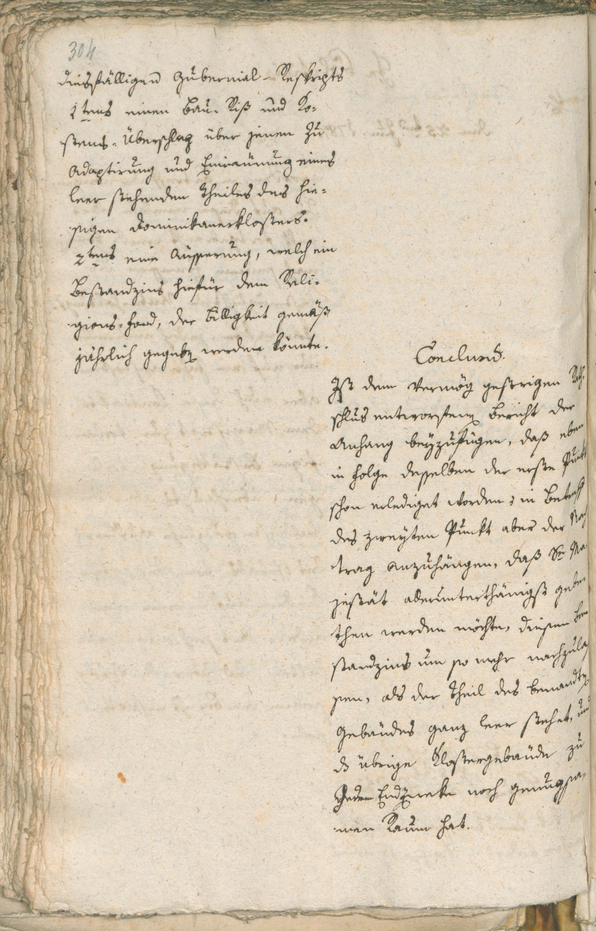 304
diesfälligen Gubernial-Reskripts
1tens einen Bau-Riß und Ko-
stens-Überschlag über jenen Zu
Adaptirung und Einräumung eines
leer stehenden Theiles des hie-
sigen Dominikanerklosters.
2tens eine Äusserung, welch ein
Bestandzins hiefür dem Reli-
gions-Fond, der Billigkeit gemäß
jährlich gegeben werden könnte.
Conclusum.
Ist dem Vermög gestrigen Rath-
schlus entworfenen Bericht der
Anhang beyzufügen, daß eben
in Folge desselben der erste Punkt
schon erlediget worden; in Betreff
des zweyten Punkt aber der An-
trag anzuhängen, daß Sr Ma-
jestät allerunterthänigst gebe-
then werden möchte, diesen Be-
standzins um so mehr nachzulas-
sen, als der Theil des benannten
Gebäudes ganz leer stehet, und
d übrige Klostergebäude zu
jedem Endzwecke noch genugsa-
men Raum hat.